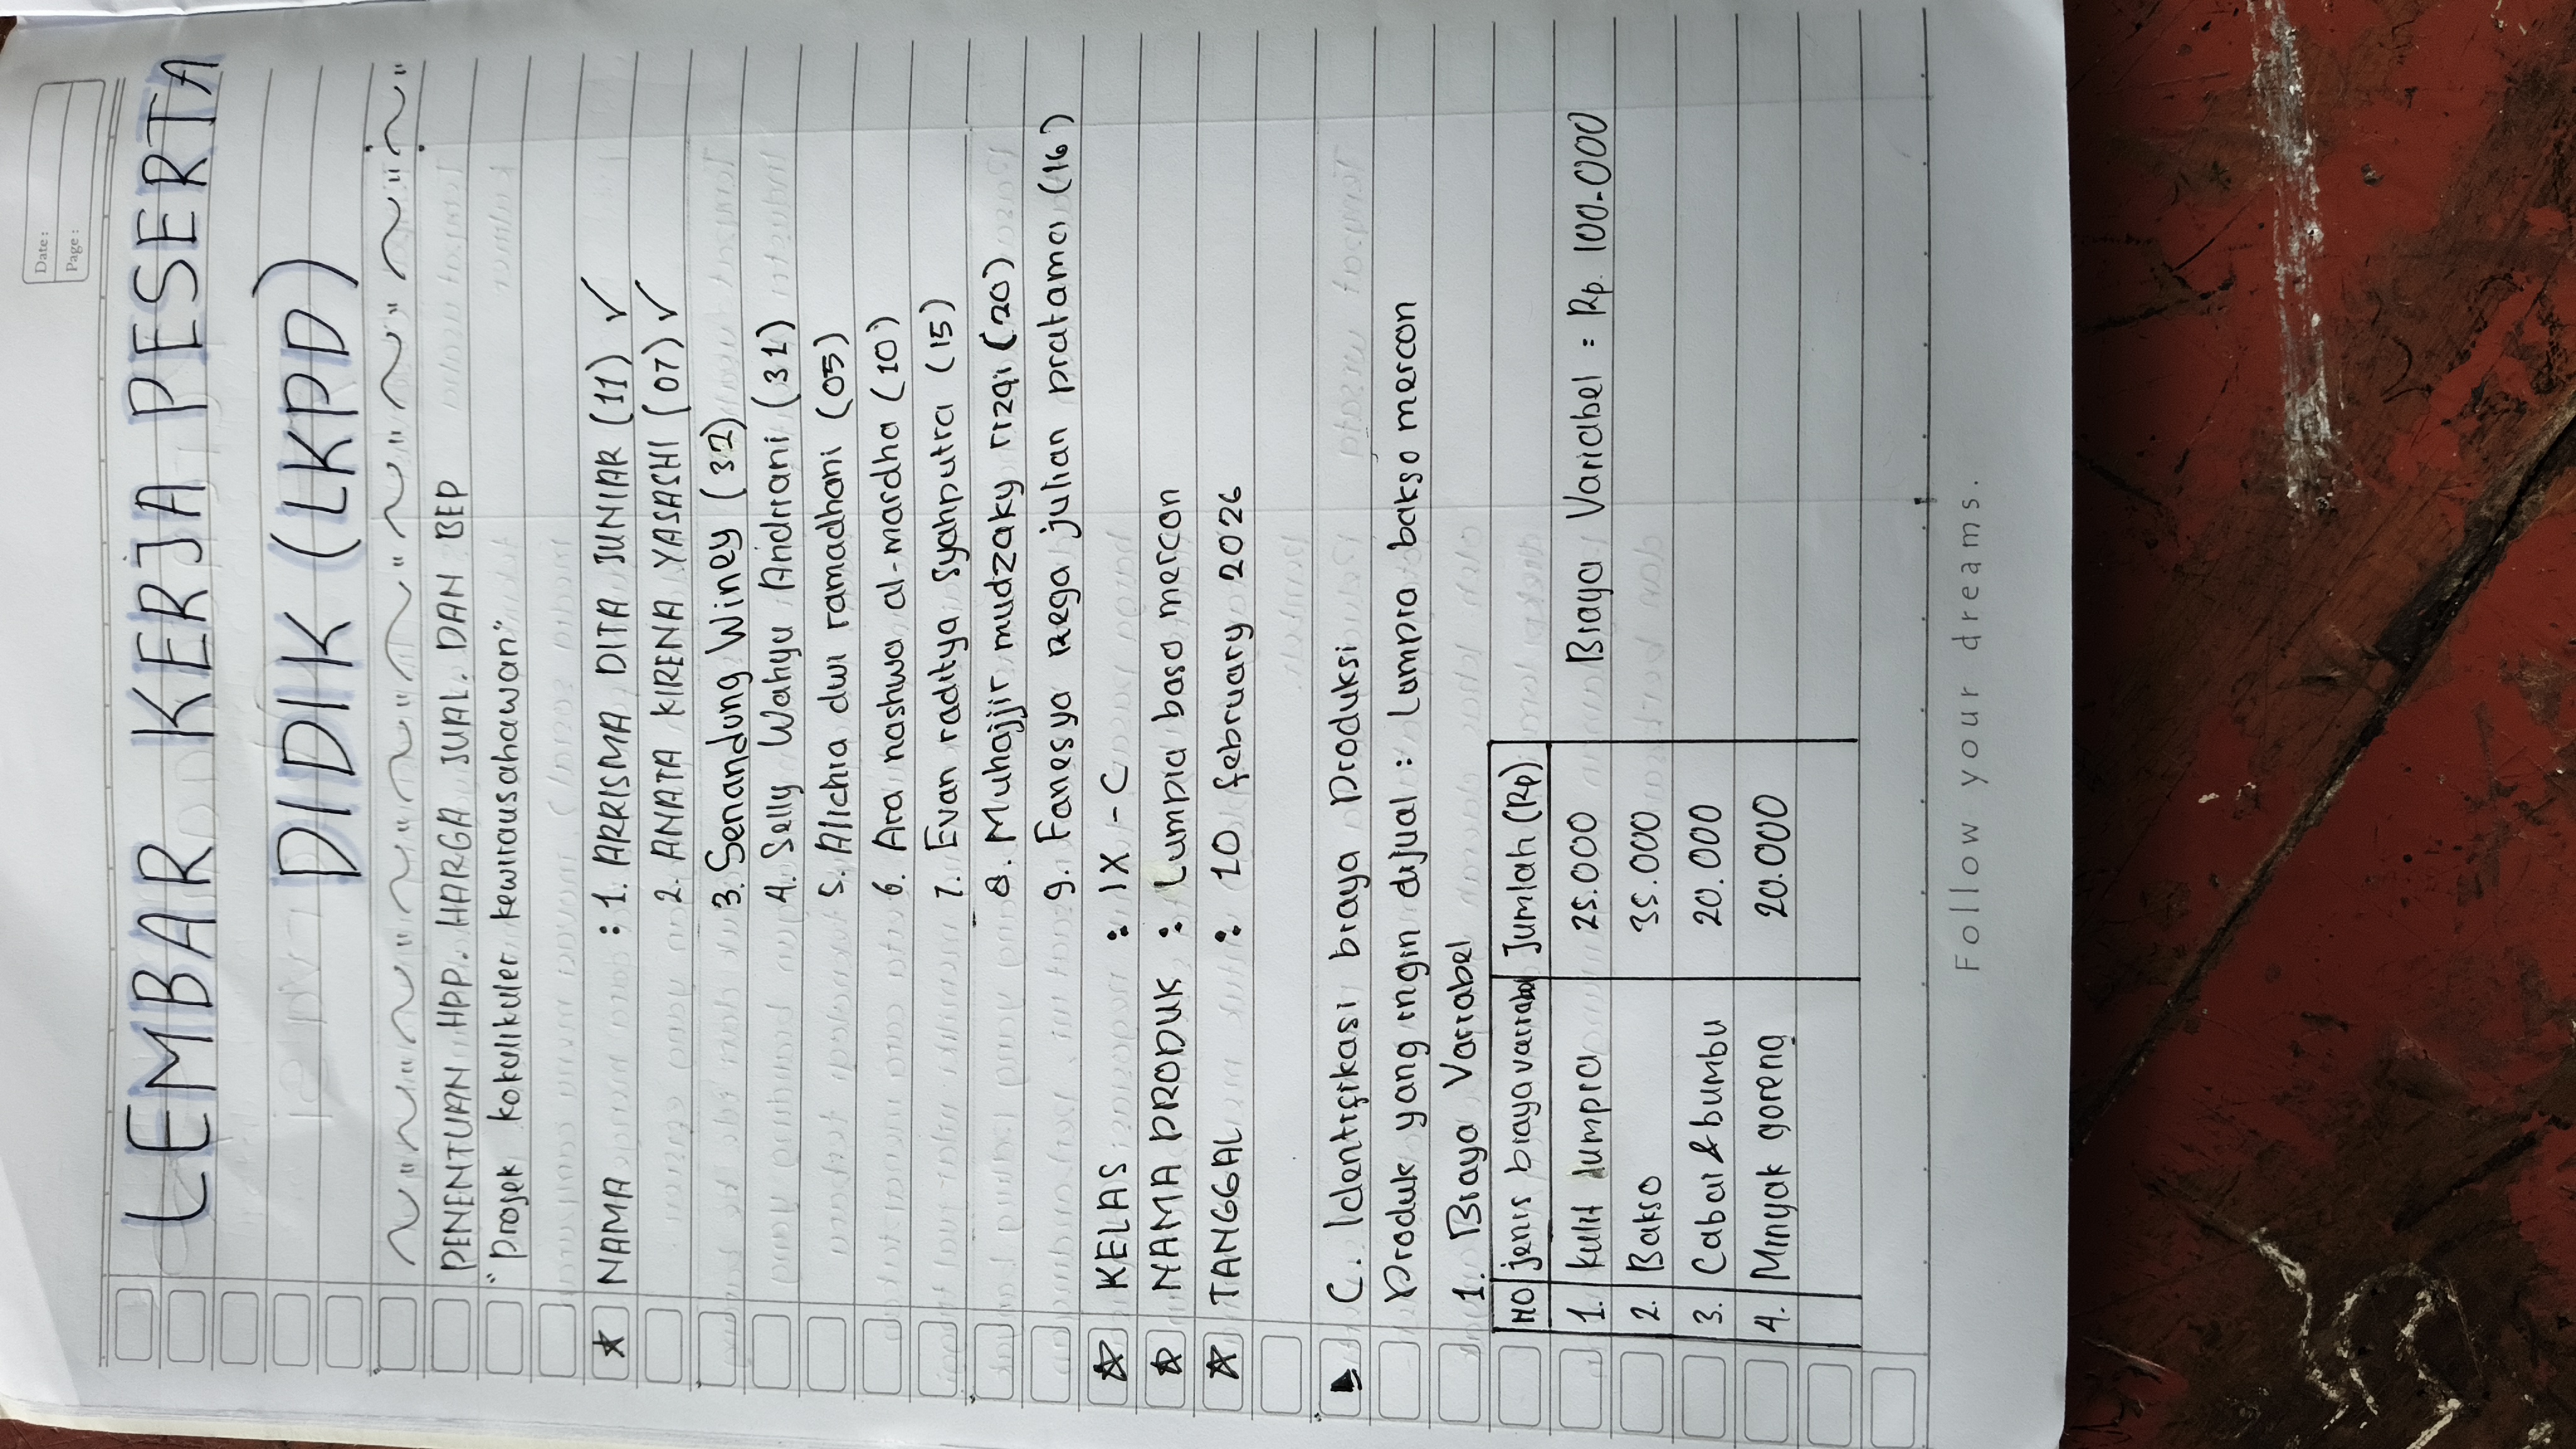 Date:
Page:
LEMBAR KERJA PESERTA
DIDIK (LKPD)
PENENTUAN HPP. HARGA JUAL. DAN BEP
"Projek kokulikuler kewirausahawan"
NAMA : 1. ARRISMA DITA JUNIAR (11) ✓
2. ANATA KIRENA YASASHI (07) ✓
3. Senandung Winey (32)
4. Selly Wahyu Andriani (31)
5. Alichia dwi ramadhani (05)
6. Ara nashwa al-mardha (10)
7. Evan raditya Syahputra (15)
8. Muhajjir mudzaky rizqi (20)
9. Fanesya rega julian pratama (16)
KELAS : IX - C
NAMA PRODUK : Lumpia baso mercon
TANGGAL : 10 february 2026
C. Identifikasi biaya Produksi
Produk yang ingin dijual : Lumpia bakso mercon
1. Biaya Variabel
NO jenis biaya variabel Jumlah (Rp)
1. kulit lumpia 25.000 Biaya Variabel = Rp. 100.000
2. Bakso 35.000
3. Cabai & bumbu 20.000
4. Minyak goreng 20.000
Follow your dreams.